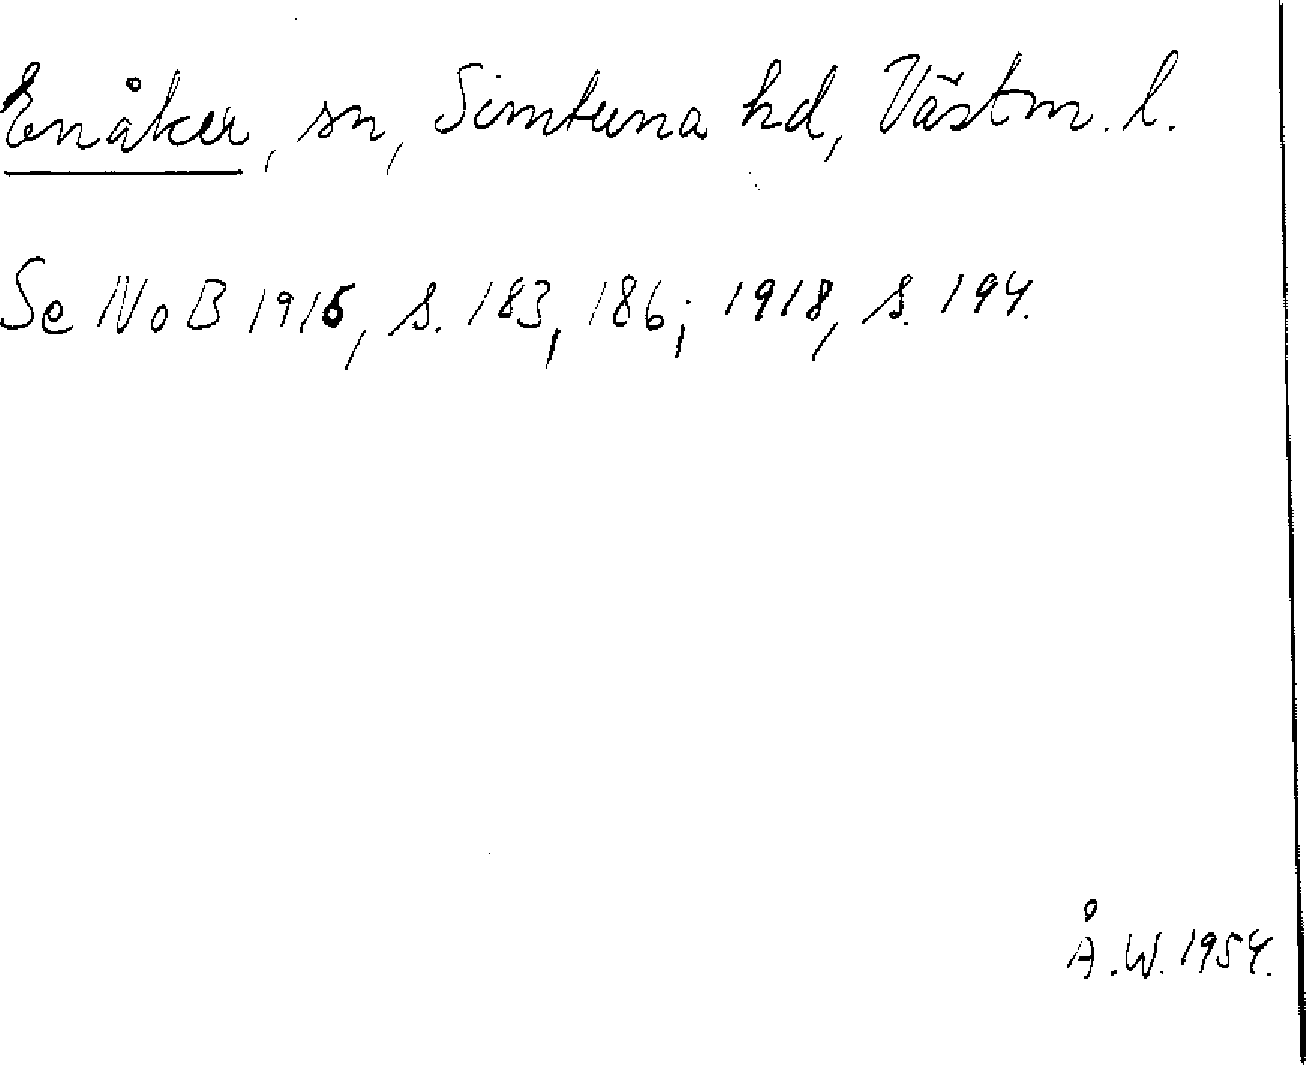 Enåker, sn, Simtuna hd, Västm. l.
Se NoB 1916, s. 183, 186; 1918, s. 194.
Å.W. 1954.